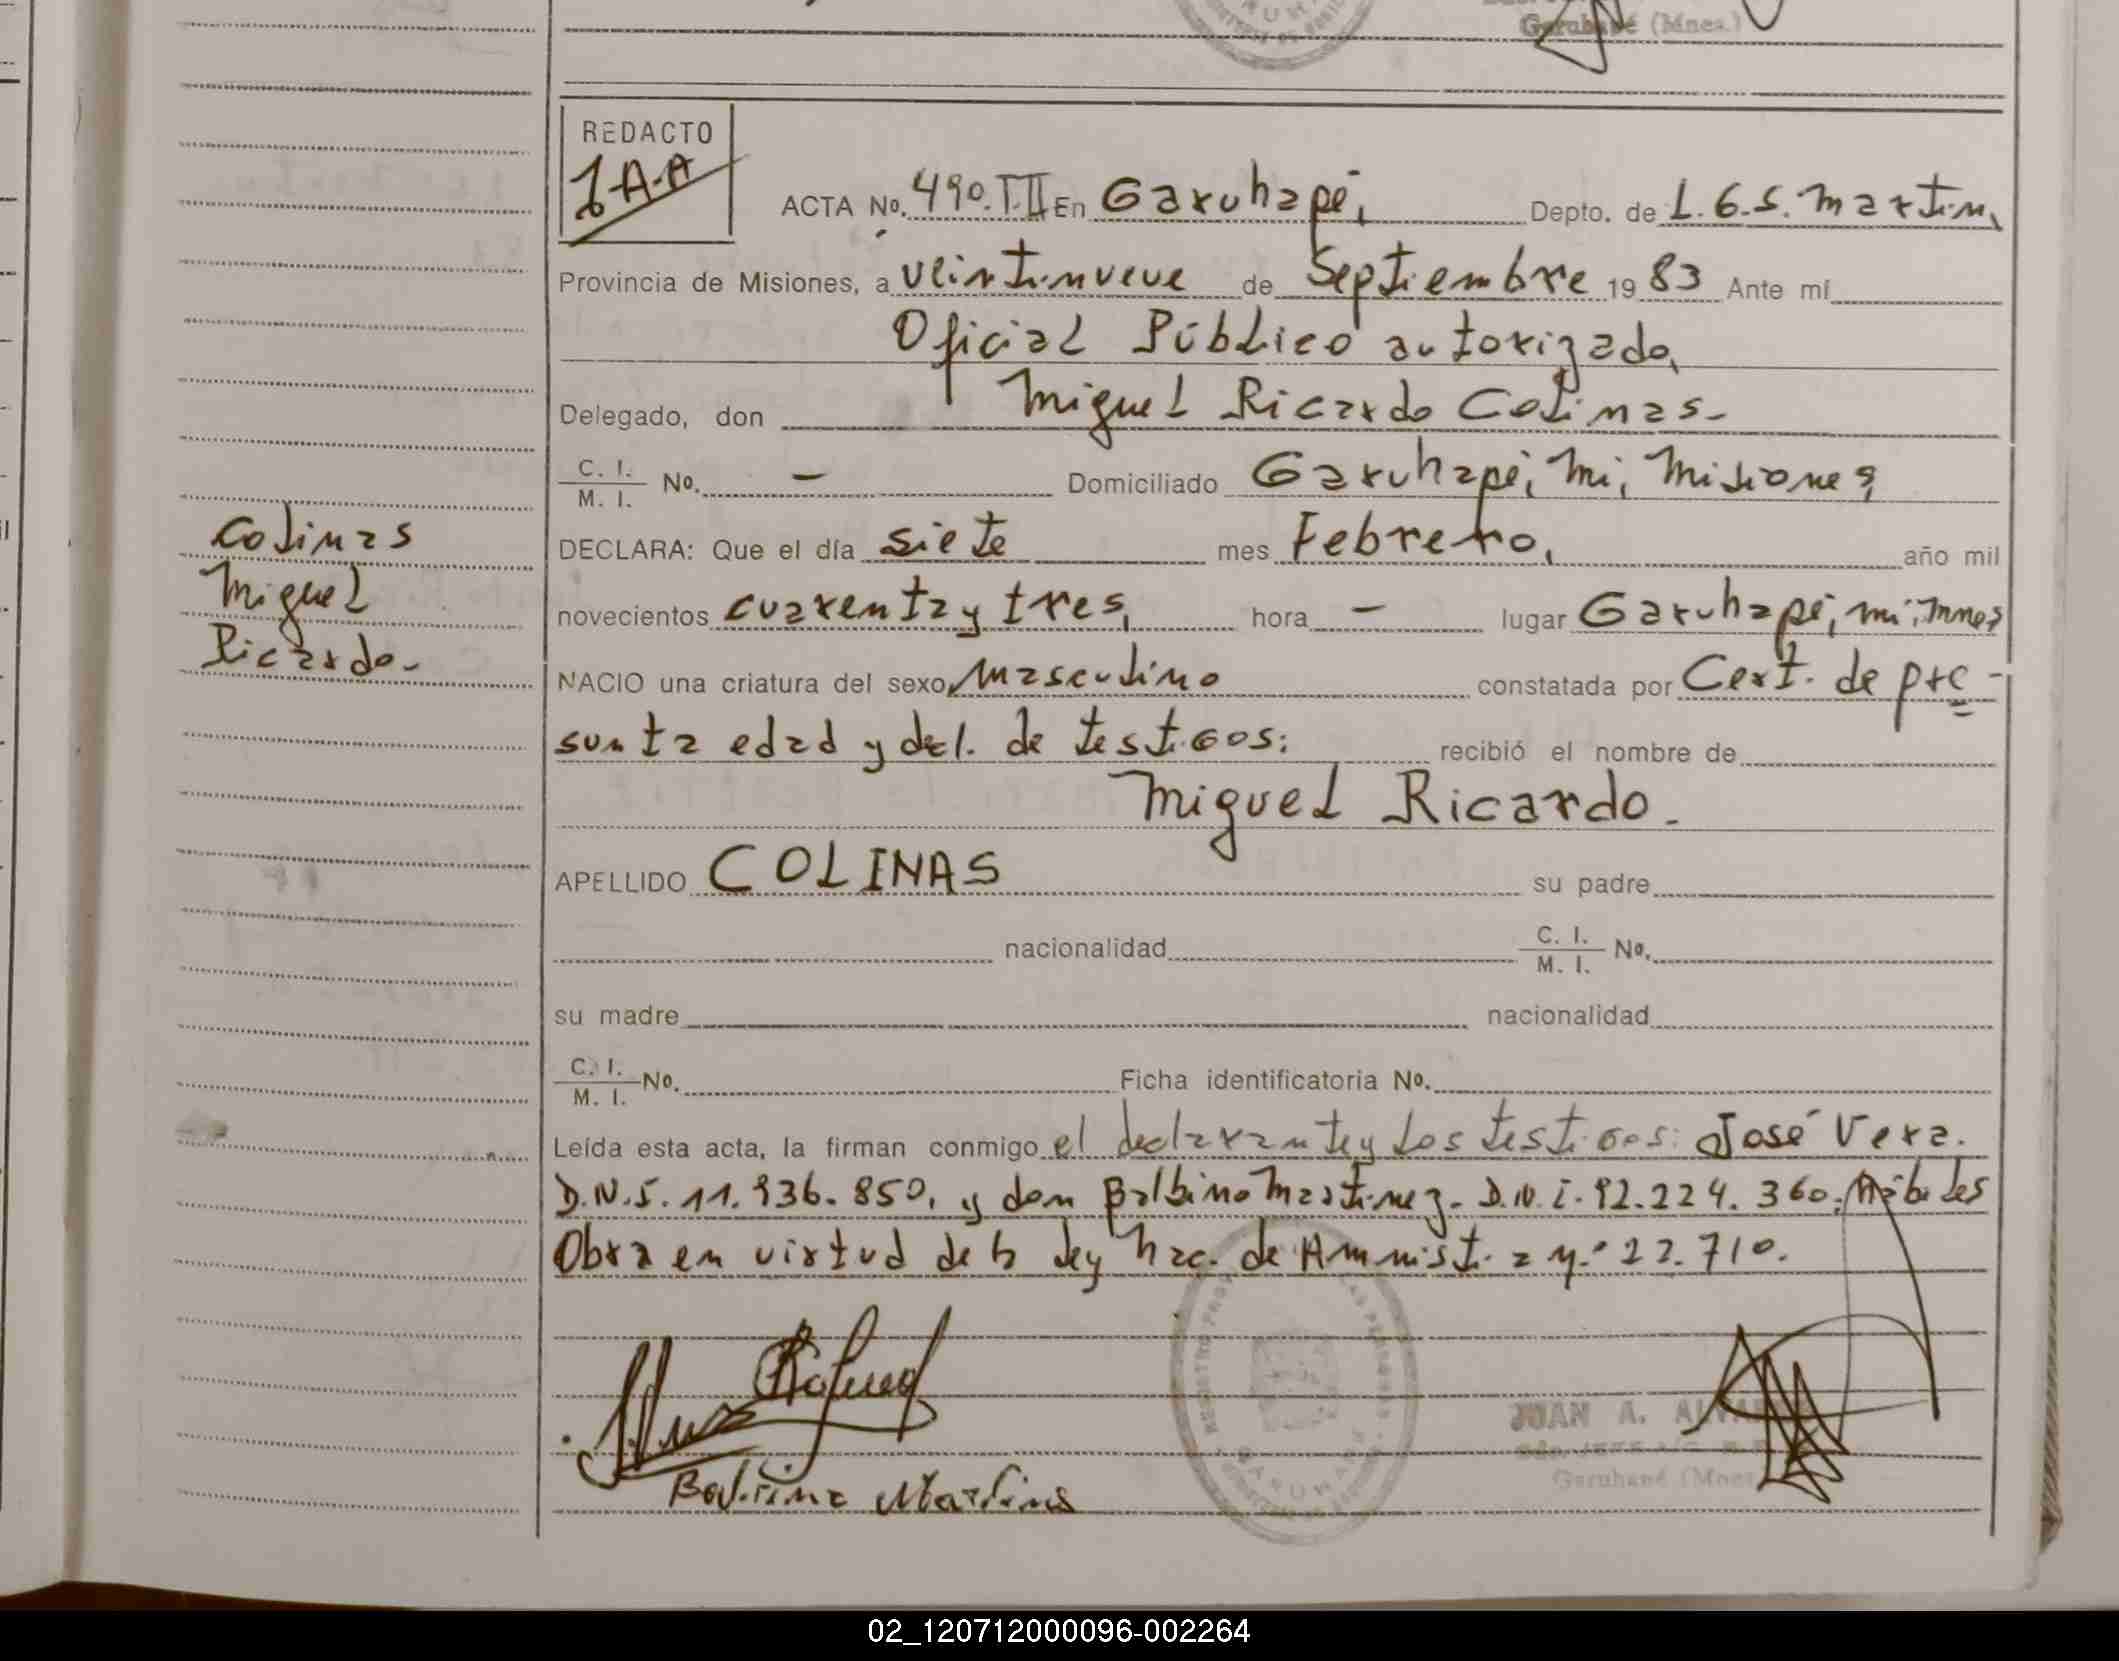 Garuhapé (Mnes.)
REDACTO
J-A-A
ACTA No. 490.T.II En Garuhapé, Depto. de L.G.S. Martin,
Provincia de Misiones, a veintinueve de Septiembre 1983 Ante mí
Oficial Público autorizado,
Delegado, don Miguel Ricardo Colinas-
C. I.
M. I. No. - Domiciliado Garuhapé, Mi, Misiones,
DECLARA: Que el día siete mes Febrero, año mil
novecientos cuarenta y tres, hora - lugar Garuhapé, mi, Mnes,
NACIO una criatura del sexo masculino constatada por Cert. de pre-
sunta edad y decl. de testigos: recibió el nombre de
Miguel Ricardo.
APELLIDO COLINAS su padre
nacionalidad C. I.
M. I. No.
su madre nacionalidad
C. I.
M. I. No. Ficha identificatoria No.
Leída esta acta, la firman conmigo el declarante y los testigos: José Vera.
D.N.I. 11.936.850, y don Balbino Martinez- D.N.I. 92.224.360. Hábiles
Obra en virtud de la ley Nac. de Amnistia nº 22.710.
Colinas
Miguel
Ricardo-
JUAN A.
Garuhapé (Mnes
02_120712000096-002264